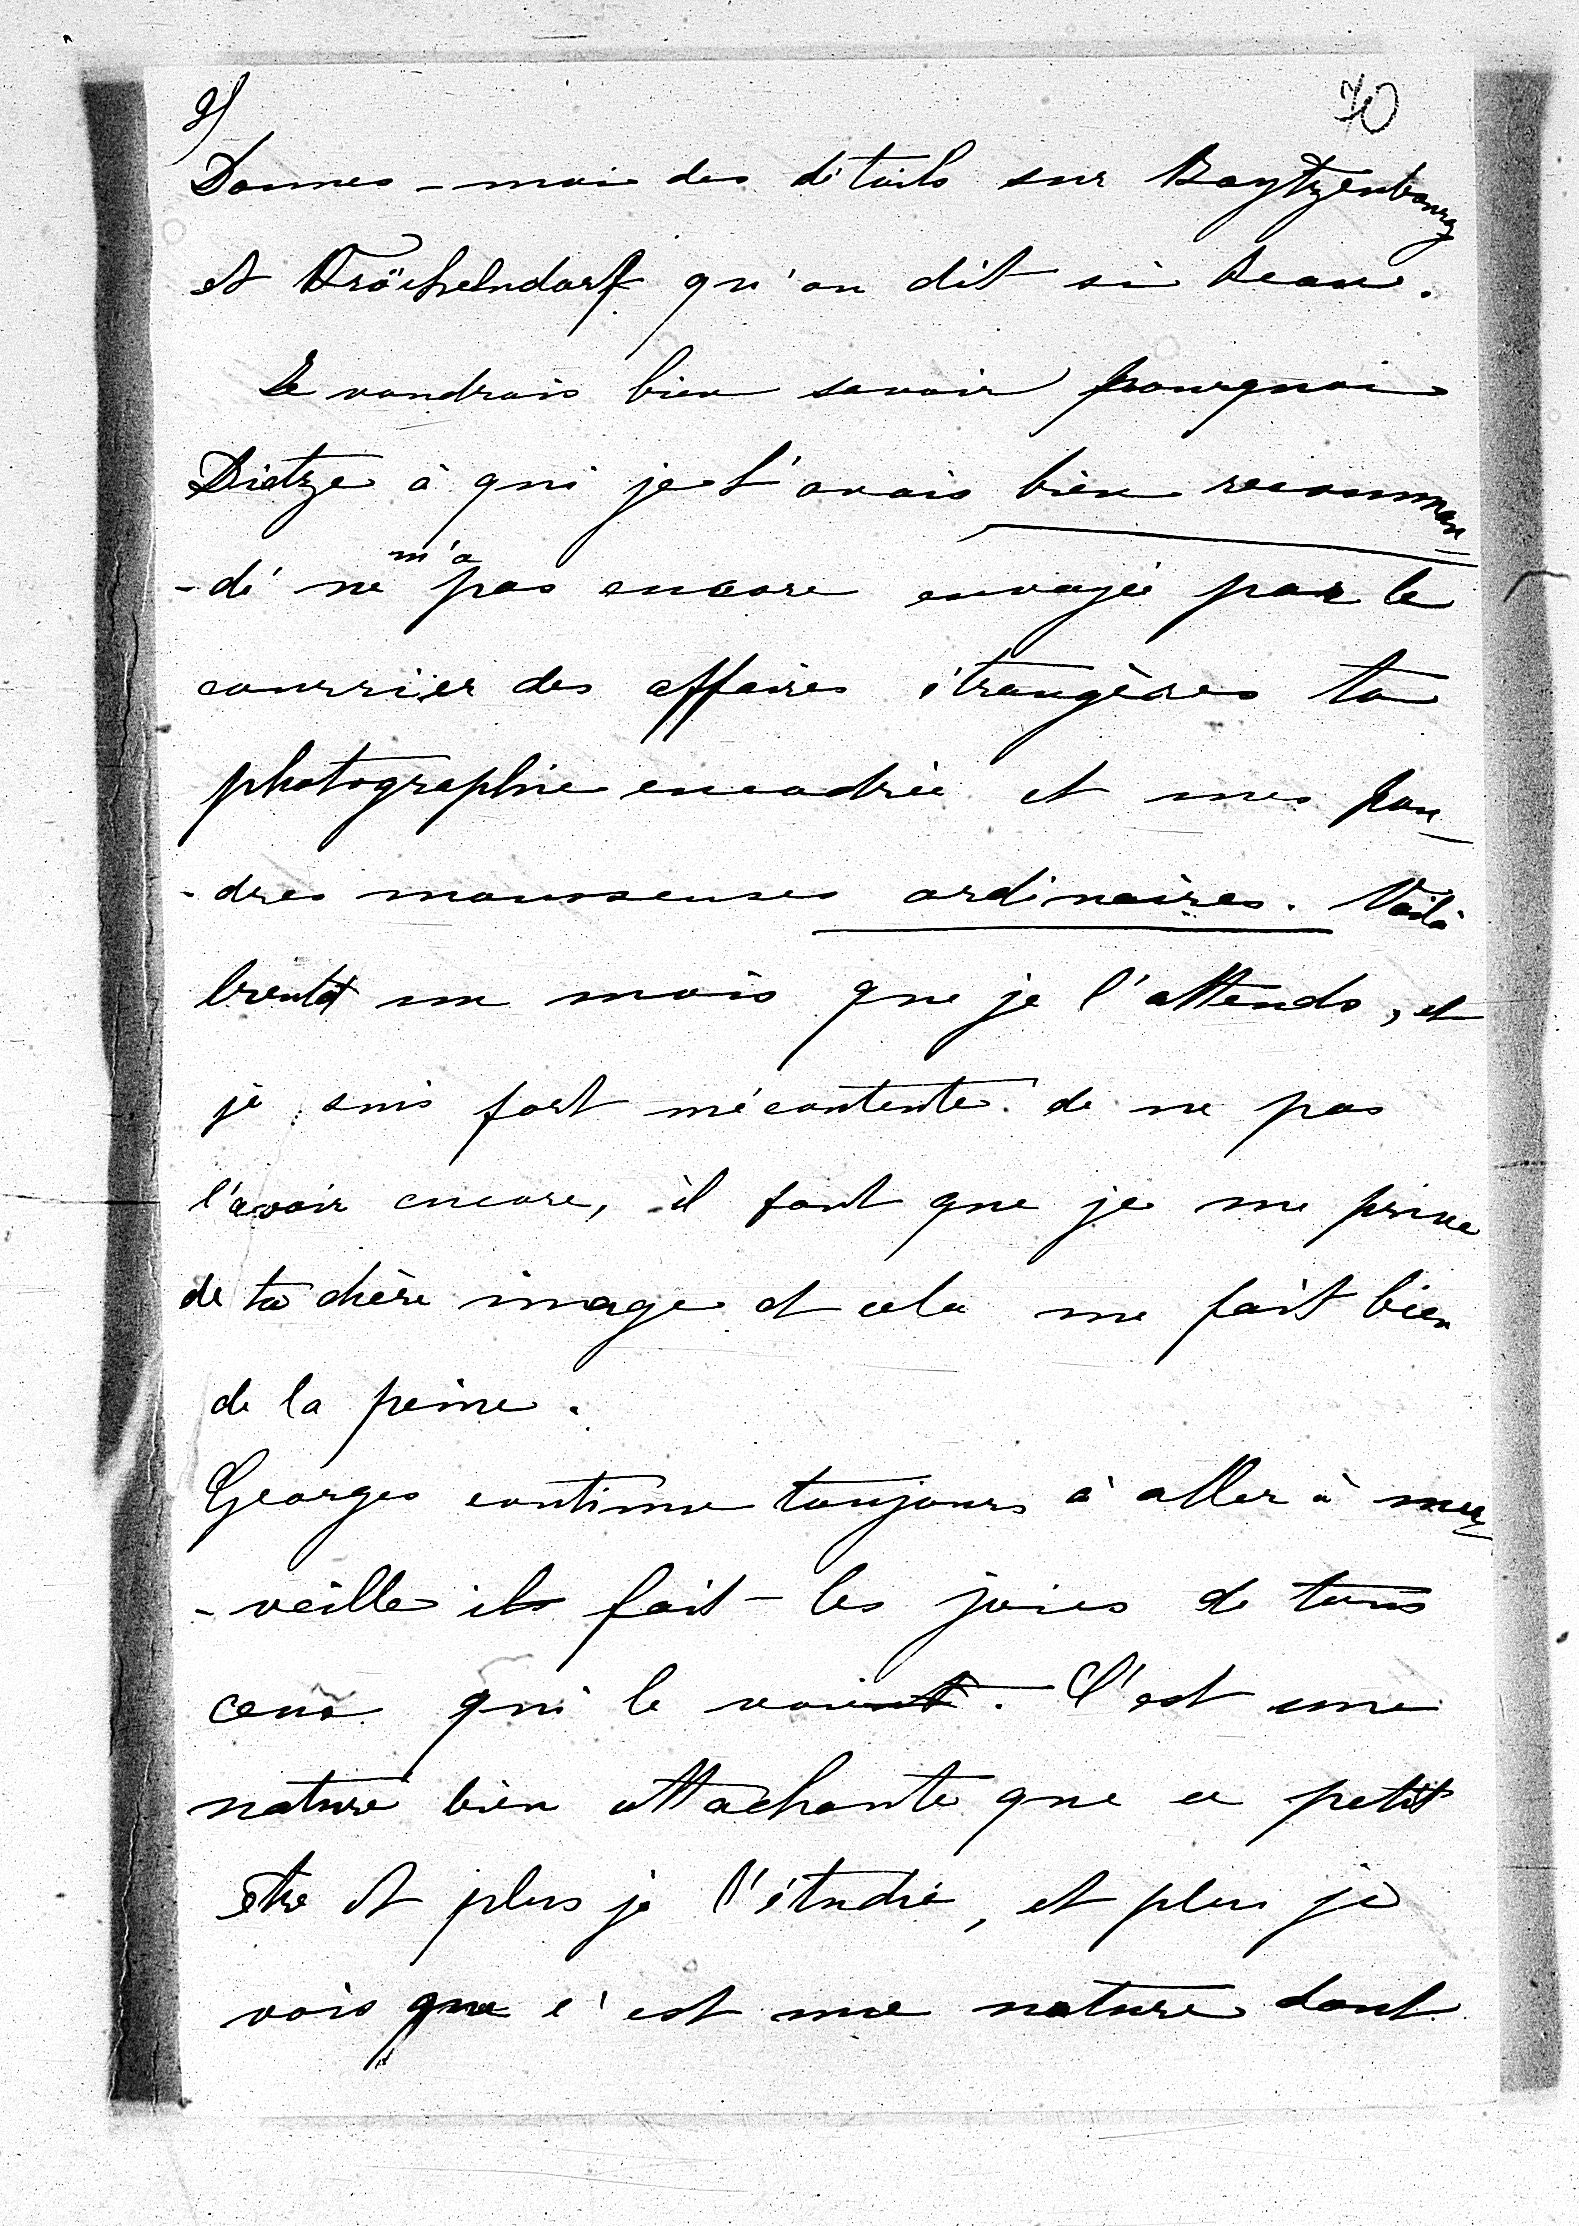 2)
70
Donnes-moi des détails sur Boytzenbourg
et Kröchelndorf qu'on dit si beau.
Je voudrais bien savoir pourquoi
Dietze à qui je l'avais bien recomman
-dé ne m'a pas encore envoyée par le
courrier des affaires étrangères ta
photographie encadrée et mes pou-
-dres mousseuses ordinaires. Voilà
bientôt un mois que je l'attends, et
je suis fort mécontente de ne pas
l'avoir encore, il faut que je me prive
de ta chère image et cela me fait bien
de la peine.
Georges continue toujours à aller à mer-
-veille il fait les joies de tous
ceux qui le voient. C'est une
nature bien attachante que ce petit
être et plus je l'étudie, et plus je
vois que c'est une nature dont